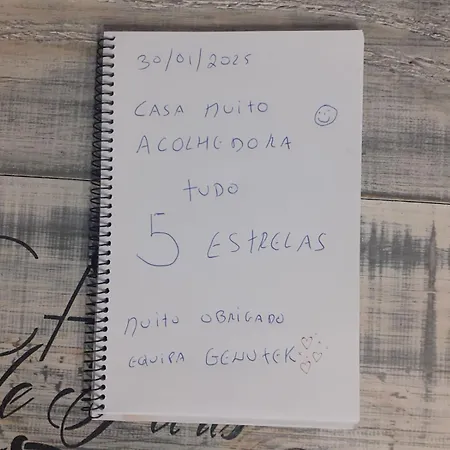 30/01/2025
CASA MUITO
ACOLHEDORA
TUDO
5 ESTRELAS
MUITO OBRIGADO
EQUIPA GENUTEK